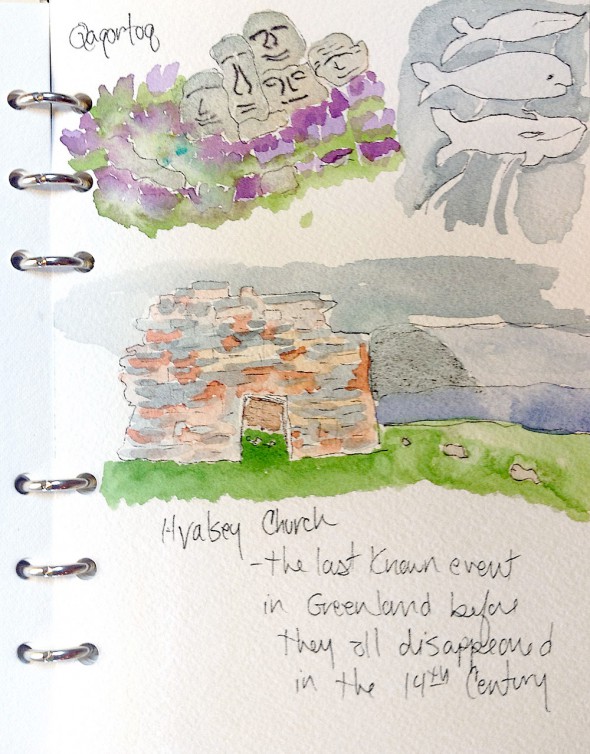 Qaqortoq
Hvalsey Church
- the last Known event
in Greenland before
they all disappeared
in the 14th Century